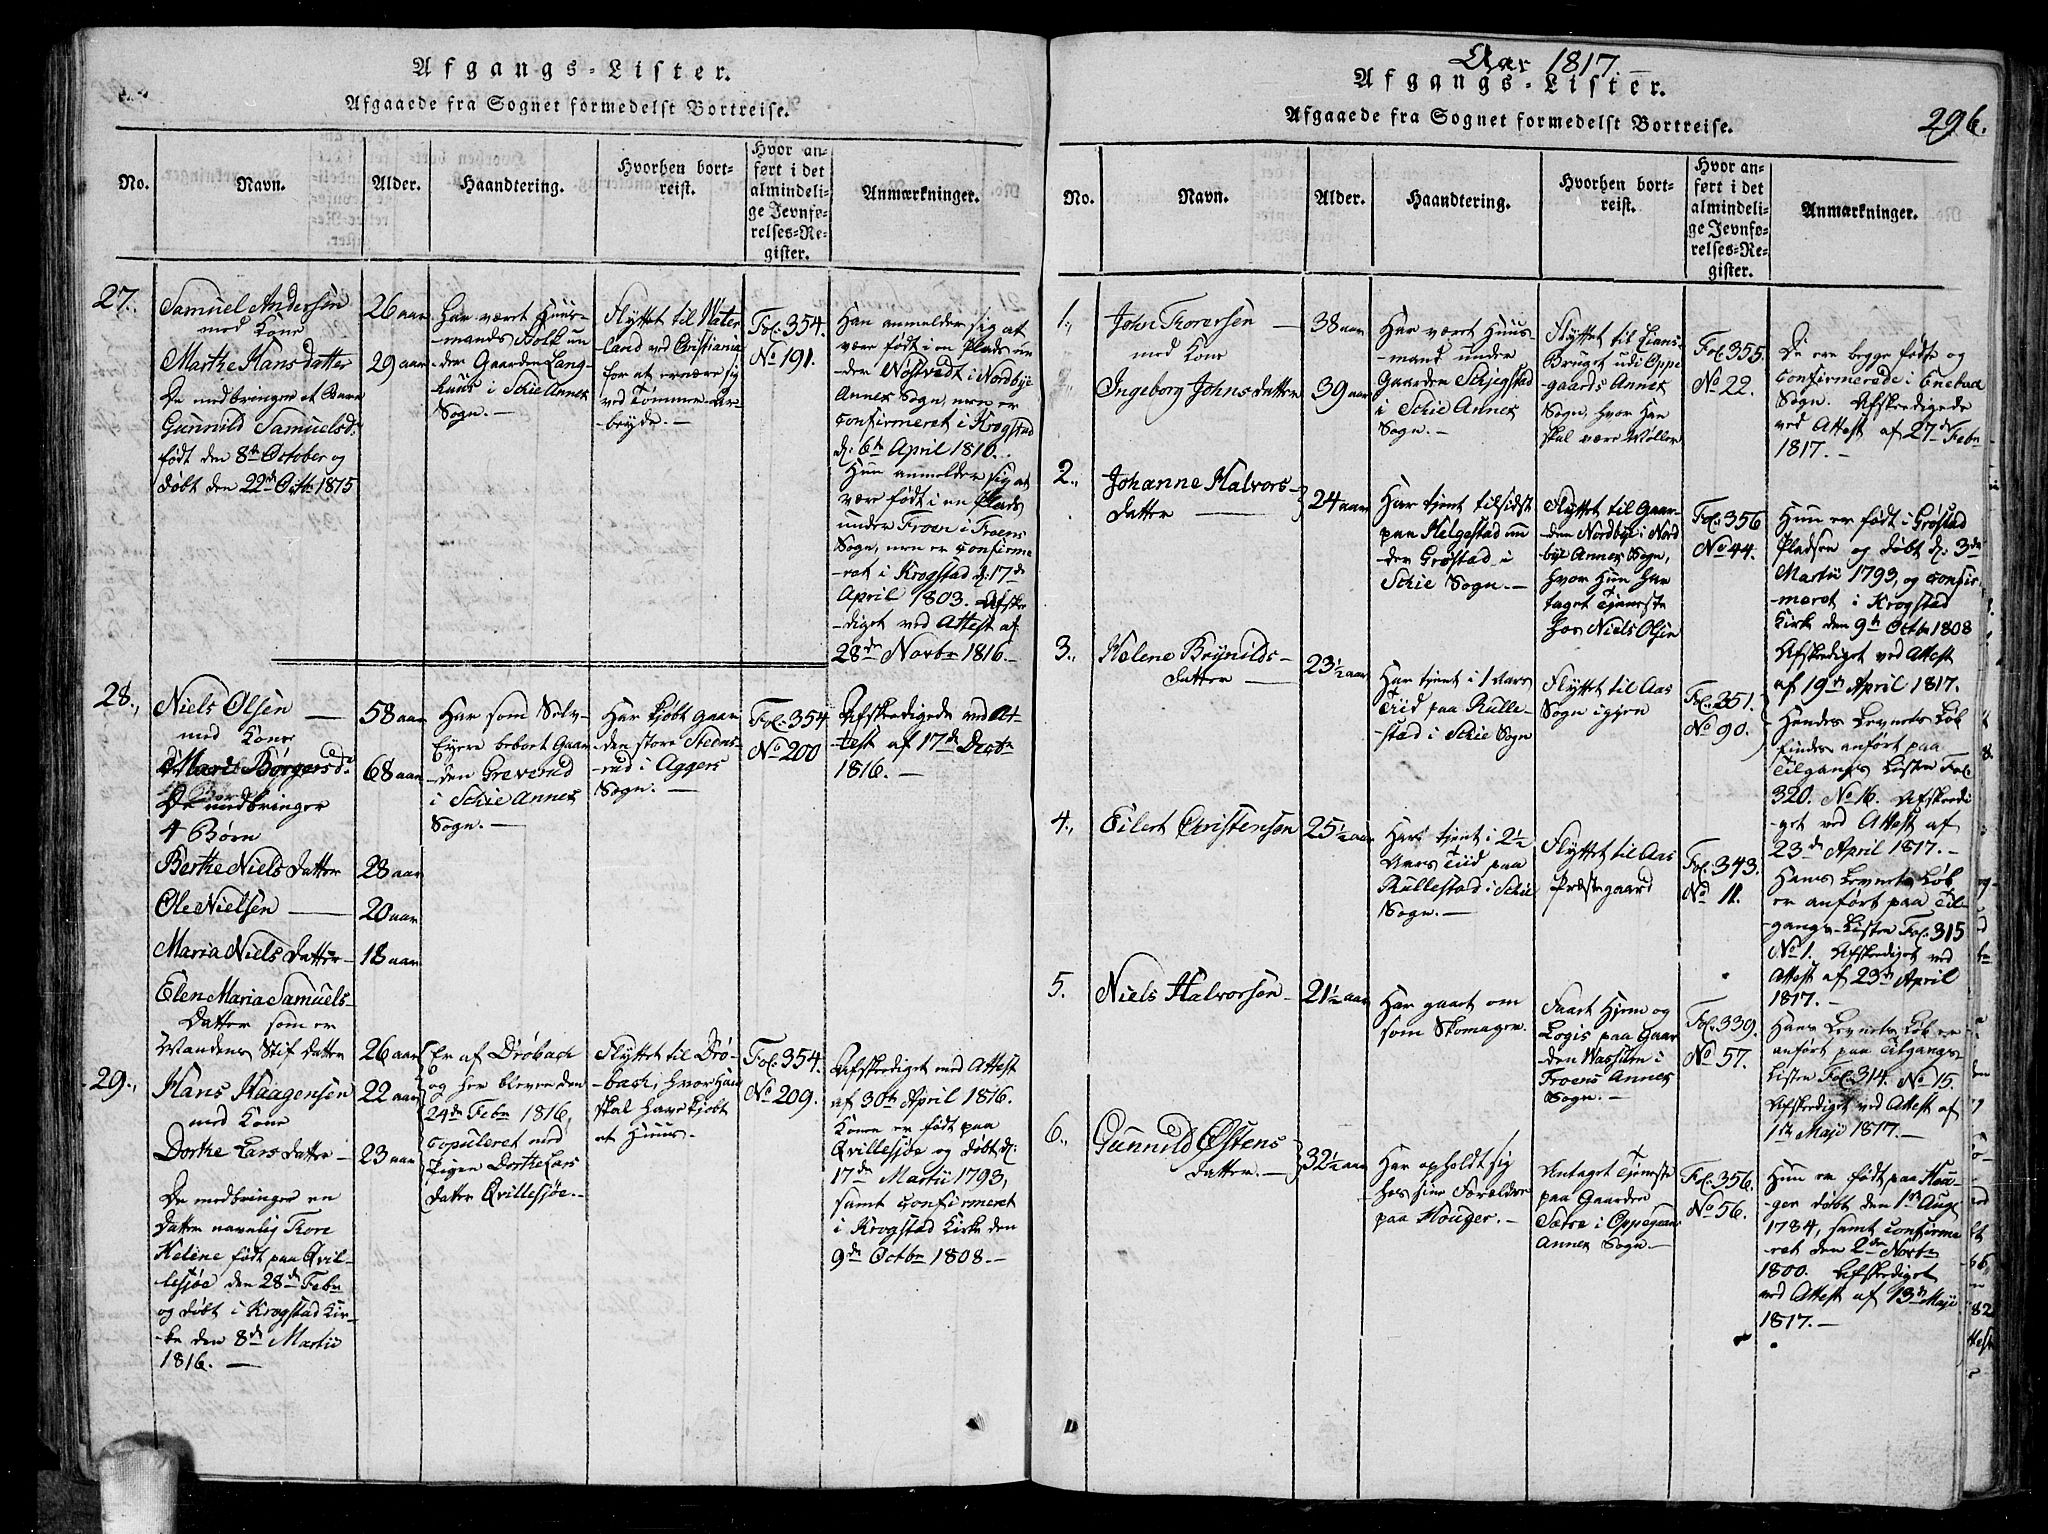 Afgangs-Lister.
Afgaaede fra Sognet formedelst Bortreise.
No.
Navn.
Alder.
Haandtering.
Hvorhen bort-
reist.
Hvor an-
ført i det
almindeli-
ge Jevnfø-
relses-Re-
gister.
Anmærkninger.
27.
Samuel Andersen
med Kone
Marthe Hansdatter
De medbringer et Barn
Gunnild Samuelsd.
født den 8de October og
døbt den 22de Octbr 1815
26 aar
29 aar
Har været Huus-
mands Folk un
der Gaarden Lang-
huus i Schie Annex
Sogn.—
Flyttet til Water
land ved Christiania
for at ernære sig
ved Tømmer-Ar-
beyde.—
Fol: 354.
No 191.
Han anmelder sig at
være født i en Plads un
der Nøstvedt i Nordbye
Annex Sogn, men er
confirmeret i Krogstad
d: 6te April 1810.
Hun anmelder sig at
være født i en Plads
under Froen i Froens
Sogn, men er confirme
-ret i Krogstad d: 17de
April 1803. Afske
-diget ved Attest af
28de Novbr 1816.—
28.,
Niels Olsen
med Kone
Mari Børgersd.
De medbringer
4 Børn
Berthe Niels Datter
Ole Nielsen
Maria Niels Datter
Elen Maria Samuels-
Datter som er
Mandens Stif Datter
58 aar
68 aar
28 aar
20 aar
18 aar
26 aar
Har som Selv-
Eyere beboet Gaar
-den Greverud
i Schie Annex
Sogn.—
Har kjøbt Gaar
-den store Steens-
rud i Aggers
Sogn.—
Fol: 354
No 200
Afskedigede ved At-
test af 17de Decbr
1816.—
29.,
Hans Haagensen
med Kone
Dorthe Lars Datter
De medbringer en
Datter navnlig Thore
Helene født paa Qvil-
lesjøe den 28de Febr
og døbt i Krogstad Kir-
-ke den 8de Martii
1816.—
22 aar
23 aar
Er af Drøbach
og her bleven den
24de Febr 1816
copuleret med
Pigen Dorthe Lars
Datter Qvillesjøe.—
Flyttet til Drø-
bach, hvor Han
skal have kjøbt
et Huus.—
Fol: 354.
No 209.
Afskediget med Attest
af 30te April 1816.
Konen er født paa
Qvillesjøe og døbt d:
17de Martii 1793,
samt confirmeret
i Krogstad Kirke den
9de Octbr 1808.—
Aar 1817
Afgangs-Lister.
Afgaaede fra Sognet formedelst Bortreise.
296.
No.
Navn.
Alder.
Haandtering.
Hvorhen bort-
reist.
Hvor an-
ført i det
almindeli-
ge Jevnfø-
relses-Re-
gister.
Anmærkninger.
1.,
John Thorersen
med Kone
Ingeborg Johns Datter
38 aar
39 aar
Har været Huus
-mand under
Gaarden Schjegstad
i Schie Annex
Sogn.—
Flyttet til Lians-
Bruget udi Oppe
-gaards Annex
Sogn, hvor Han
skal være Møller
Fol: 355.
No 22.
De ere begge fødte og
confirmerede i Enebak
Sogn. Afskedigede
ved Attest af 27de Febr
1817.—
2.,
Johanne Halvors-
Datter
24 aar
Har tjent tilsidst
paa Helgestad un
der Grøstad i
Schie Sogn.—
Flyttet til Gaar-
den Nordbye i Nord
bye Annex Sogn,
hvor Hun har
taget Tjeneste
hos Niels Olsen
Fol: 356
No 44.
Hun er født i Grøstad
Pladsen og døbt d: 3de
Martii 1793, og confir
-meret i Krogstad
Kirke den 9de Octbr 1808
Afskediget ved Attest
af 19de April 1817.
3.,
Helene Brynilds-
Datter
23½ aar
Har tjent i 1 Aars
Tiid paa Rulle-
stad i Schie Sogn
Flyttet til Aas
Sogn igjen
Fol: 351.
No 90.
Hendes Levnets Løb
findes anført paa
Tilgangs Listen Fol:
320. No 16. Afskedi
-get ved Attest af
23de April 1817.—
4.,
Eilert Christensen
25½ aar
Har tjent i 2½
Aars Tiid paa
Rullestad i Schie
Sogn.—
Flyttet til Aas
Præstegaard
Fol: 343.
No 11.
Hans Levnets Løb
er anført paa Til-
gangs-Listen Fol: 315
No 1. Afskediget ved
Attest af 23de April
1817.—
5.
Niels Halvorsen
21½ aar
Har gaaet om
som Skomager.
Faaet Hjem og
Logis paa Gaar
den Wassum i
Froens Annex
Sogn.—
Fol: 339.
No 57.
Hans Levnets Løb er
anført paa Tilgangs-
Listen Fol: 314. No 15.
Afskediget ved Attest af
1ste Maji 1817.—
6.,
Gunnild Østens
Datter.—
32½ aar
Har opholdt sig
hos sine Forældre
paa Houger.—
Antaget Tjeneste
paa Gaarden
Sætre i Oppegaar
Annex Sogn.—
Fol: 356.
No 56.
Hun er født paa Hou-
ger døbt den 1ste Aug
1784, samt confirme
ret den 2den Novbr
1800. Afskediget
ved Attest af 13de Maji
1817.—